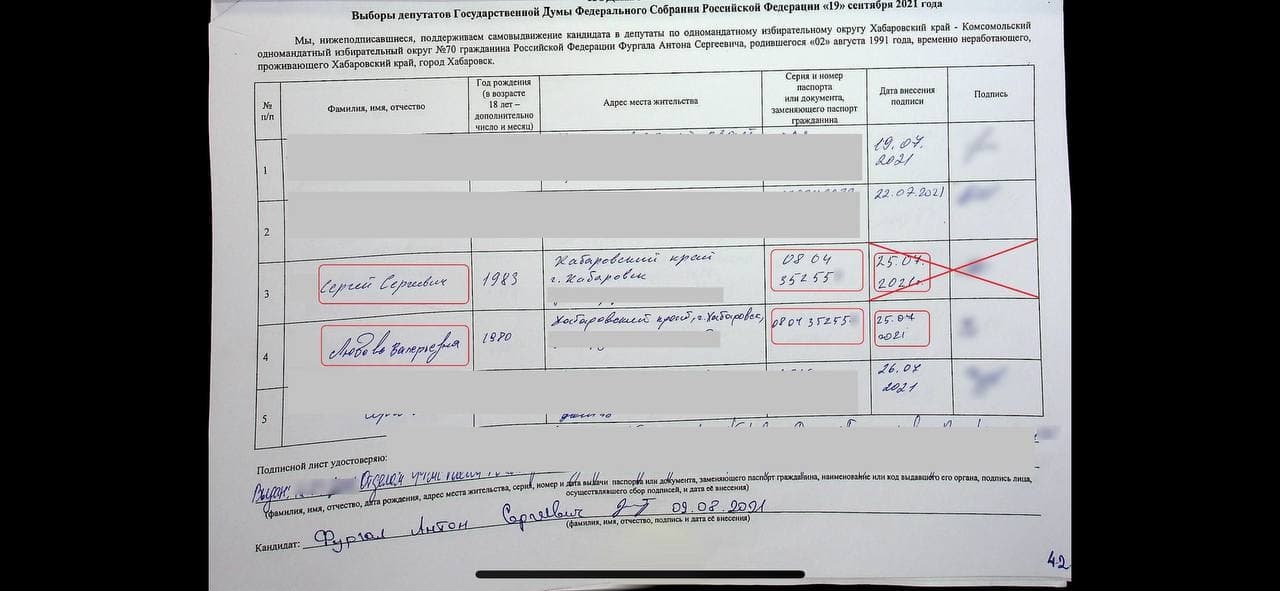 Выборы депутатов Государственной Думы Федерального Собрания Российской Федерации «19» сентября 2021 года
Мы, нижеподписавшиеся, поддерживаем самовыдвижение кандидата в депутаты по одномандатному избирательному округу Хабаровский край - Комсомольский
одномандатный избирательный округ №70 гражданина Российской Федерации Фургала Антона Сергеевича, родившегося «02» августа 1991 года, временно неработающего,
проживающего Хабаровский край, город Хабаровск.
№ п/п
Фамилия, имя, отчество
Год рождения
(в возрасте
18 лет –
дополнительно
число и месяц)
Адрес места жительства
Серия и номер
паспорта
или документа,
заменяющего паспорт
гражданина
Дата внесения
подписи
Подпись
1
19.07.
2021
2
22.07.2021
3
Сергей Сергеевич
1983
Хабаровский край
г. Хабаровск
08 04
35255
25.07.
2021г.
4
Любовь Валерьевна
1980
Хабаровский край, г. Хабаровск,
0804 35255
25.07
2021
5
26.07
2021
Подписной лист удостоверяю:
Выдан: Отделом
(фамилия, имя, отчество, дата рождения, адрес места жительства, серия, номер и дата выдачи паспорта или документа, заменяющего паспорт гражданина, наименование или код выдавшего его органа, подпись лица,
осуществлявшего сбор подписей, и дата её внесения)
Кандидат: Фургал Антон Сергеевич 09.08.2021
(фамилия, имя, отчество, подпись и дата её внесения)
42